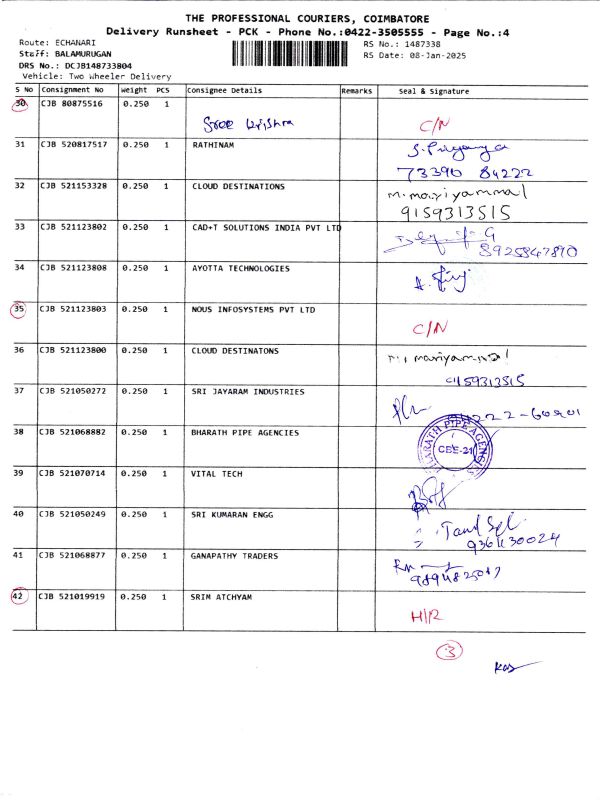 THE PROFESSIONAL COURIERS, COIMBATORE
Delivery Runsheet - PCK - Phone No.:0422-3505555 - Page No.:4
Route: ECHANARI RS No.: 1487338
Staff: BALAMURUGAN RS Date: 08-Jan-2025
DRS No.: DCJB148733804
Vehicle: Two Wheeler Delivery
S No Consignment No Weight PCS Consignee Details Remarks Seal & Signature
30 CJB 80875516 0.250 1
Sree krishna C/N
31 CJB 520817517 0.250 1 RATHINAM S. Priyanga
73390 84222
32 CJB 521153328 0.250 1 CLOUD DESTINATIONS M. mariyammal
9159313515
33 CJB 521123802 0.250 1 CAD+T SOLUTIONS INDIA PVT LTD
8925847890
34 CJB 521123808 0.250 1 AYOTTA TECHNOLOGIES
35 CJB 521123803 0.250 1 NOUS INFOSYSTEMS PVT LTD
C/N
36 CJB 521123800 0.250 1 CLOUD DESTINATONS mariyammal
9159313515
37 CJB 521050272 0.250 1 SRI JAYARAM INDUSTRIES
38 CJB 521068882 0.250 1 BHARATH PIPE AGENCIES
BHARATH PIPE AGENCIES
CBE-21
39 CJB 521070714 0.250 1 VITAL TECH
40 CJB 521050249 0.250 1 SRI KUMARAN ENGG
41 CJB 521068877 0.250 1 GANAPATHY TRADERS
42 CJB 521019919 0.250 1 SRIM ATCHYAM
H/R
3